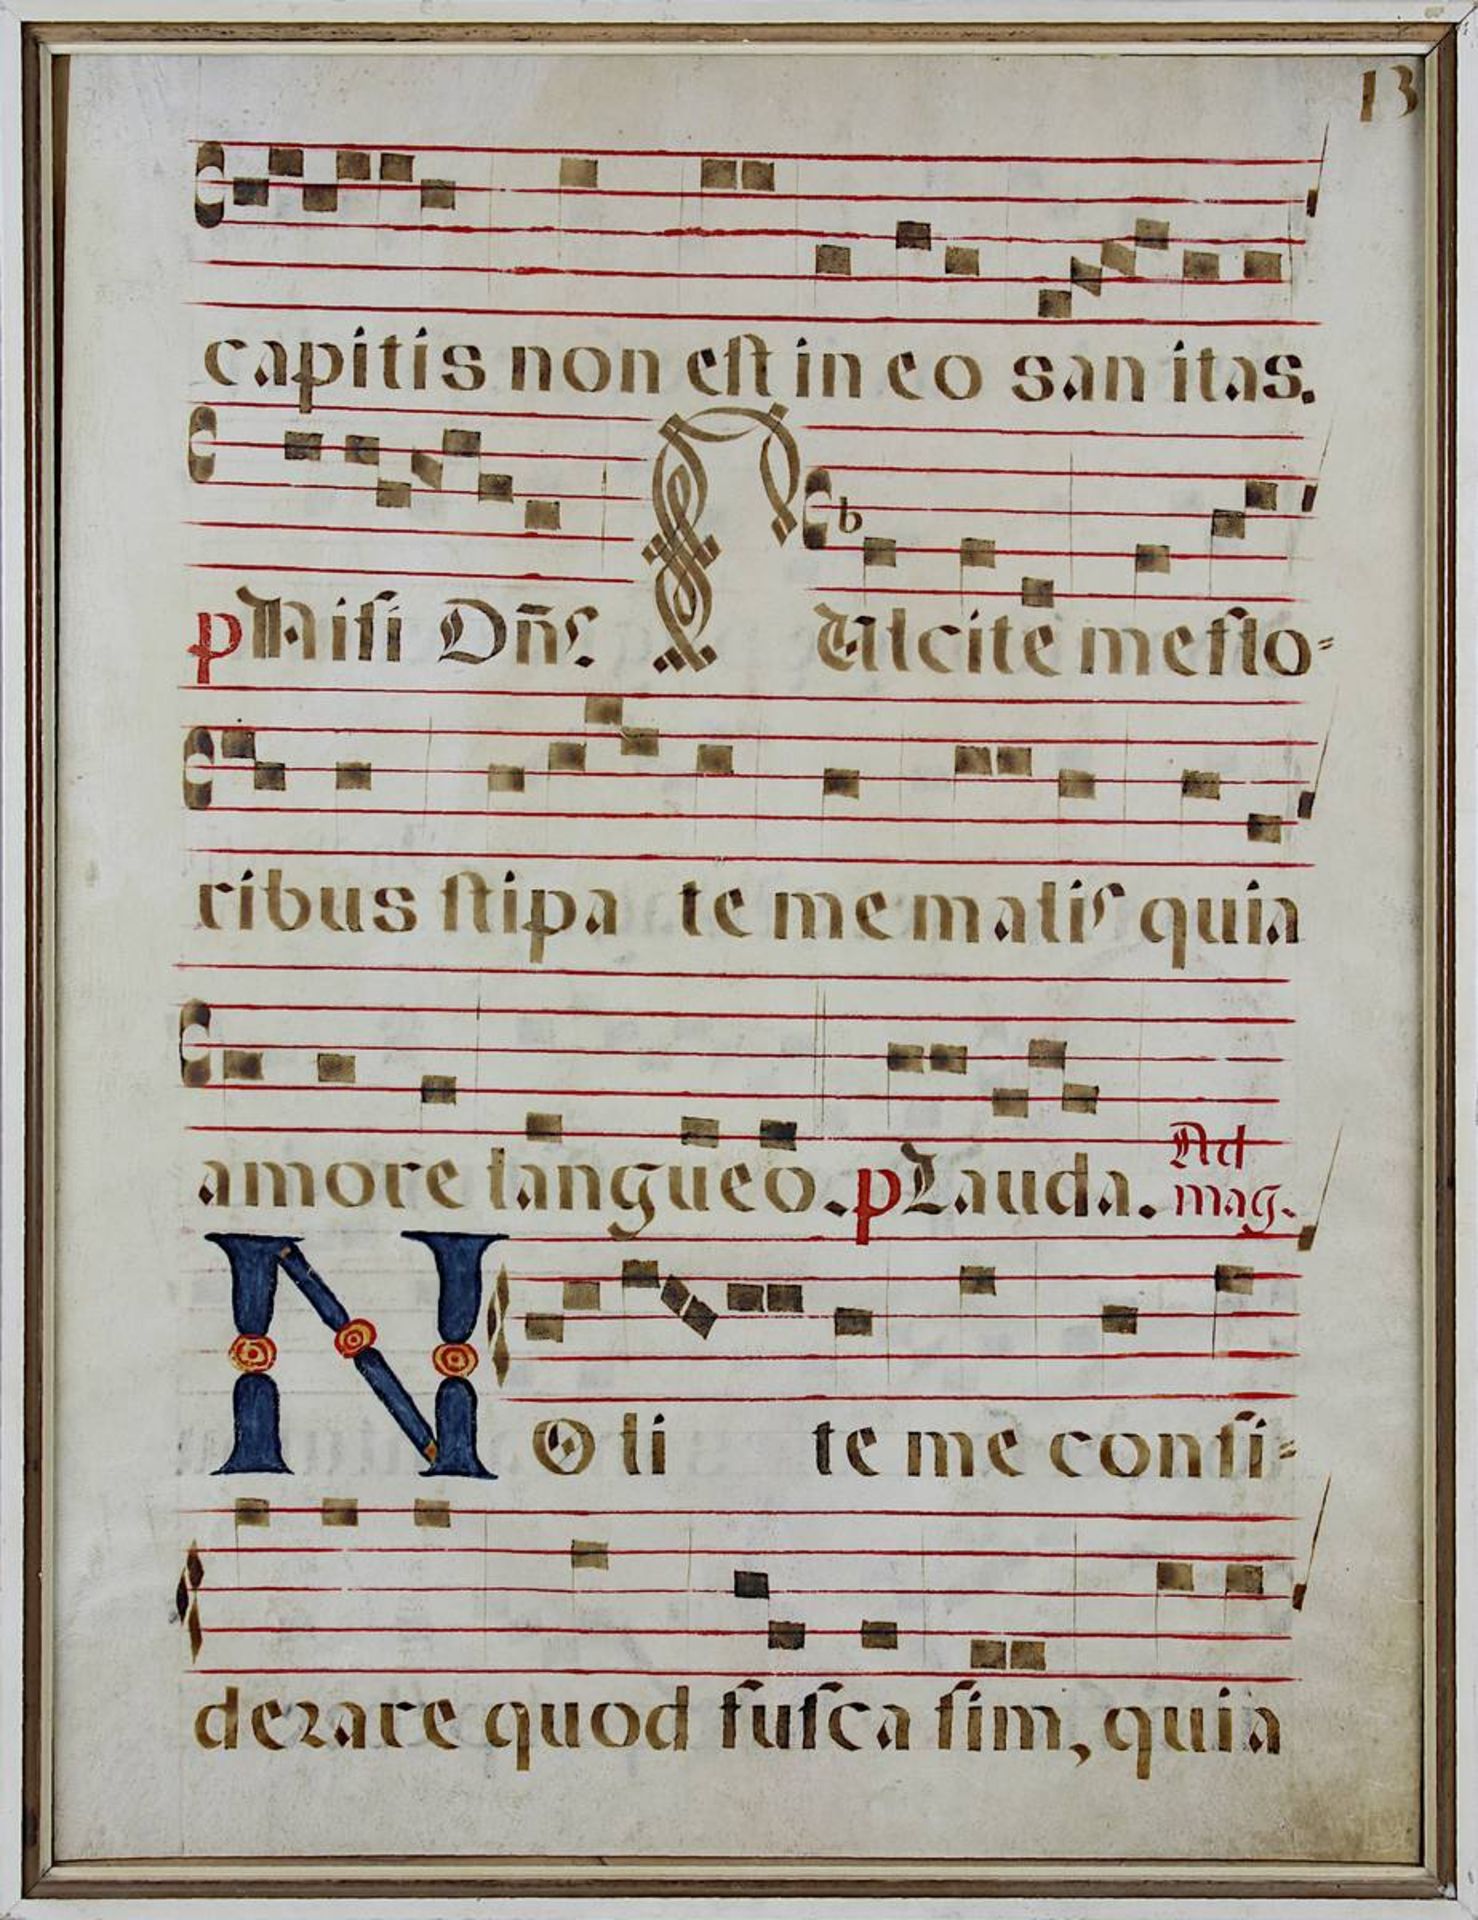 13
capitis non est in eo san itas.
p Nisi Dñs. F Ulcite me flo=
ribus stipa te me malis quia
amore langueo. p Lauda. Ad mag.
N O li te me consi=
derare quod fusca sim, quia